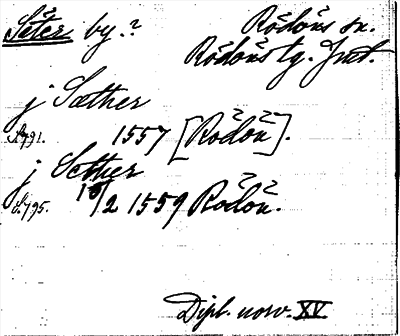 Säter by.? Rödöns sn.
Rödöns tg. Jmtl.
j Sæther
S.791. 1557 [Rödön].
j Sether
S.795. 18/2 1559 Rödön.
Dipl. norv. XV.